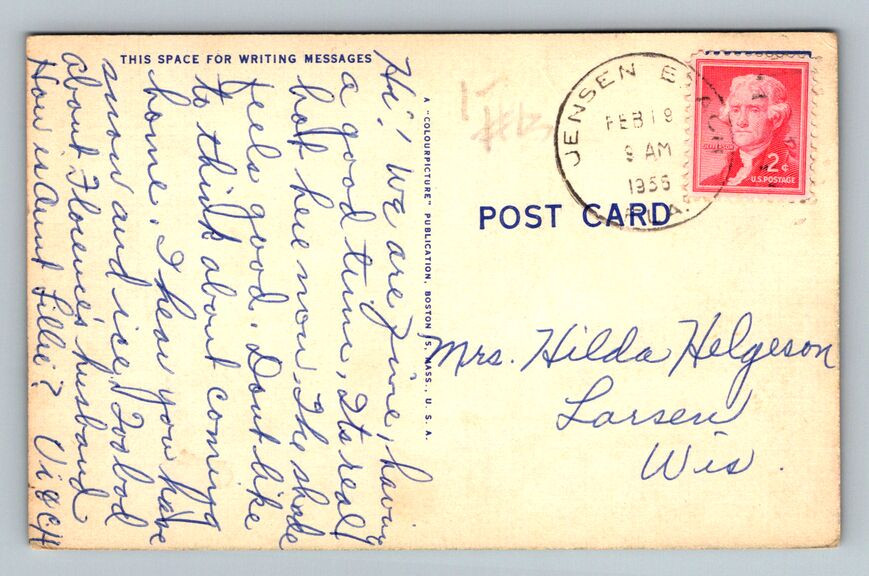 THIS SPACE FOR WRITING MESSAGES
Hi! We are fine, having
a good time, Its real
hot here now. The shade
feels good. Dont like
to think about coming
home. I hear you have
snow and ice. Too bad
about Florence's husband
How is Aunt Lillie?
A "COLOURPICTURE" PUBLICATION, BOSTON 15, MASS., U. S. A.
JENSEN BEACH
FEB 19
9 AM
1956
FLA.
JEFFERSON
2¢
U.S. POSTAGE
POST CARD
Mrs. Hilda Helgeson
Larsen
Wis.